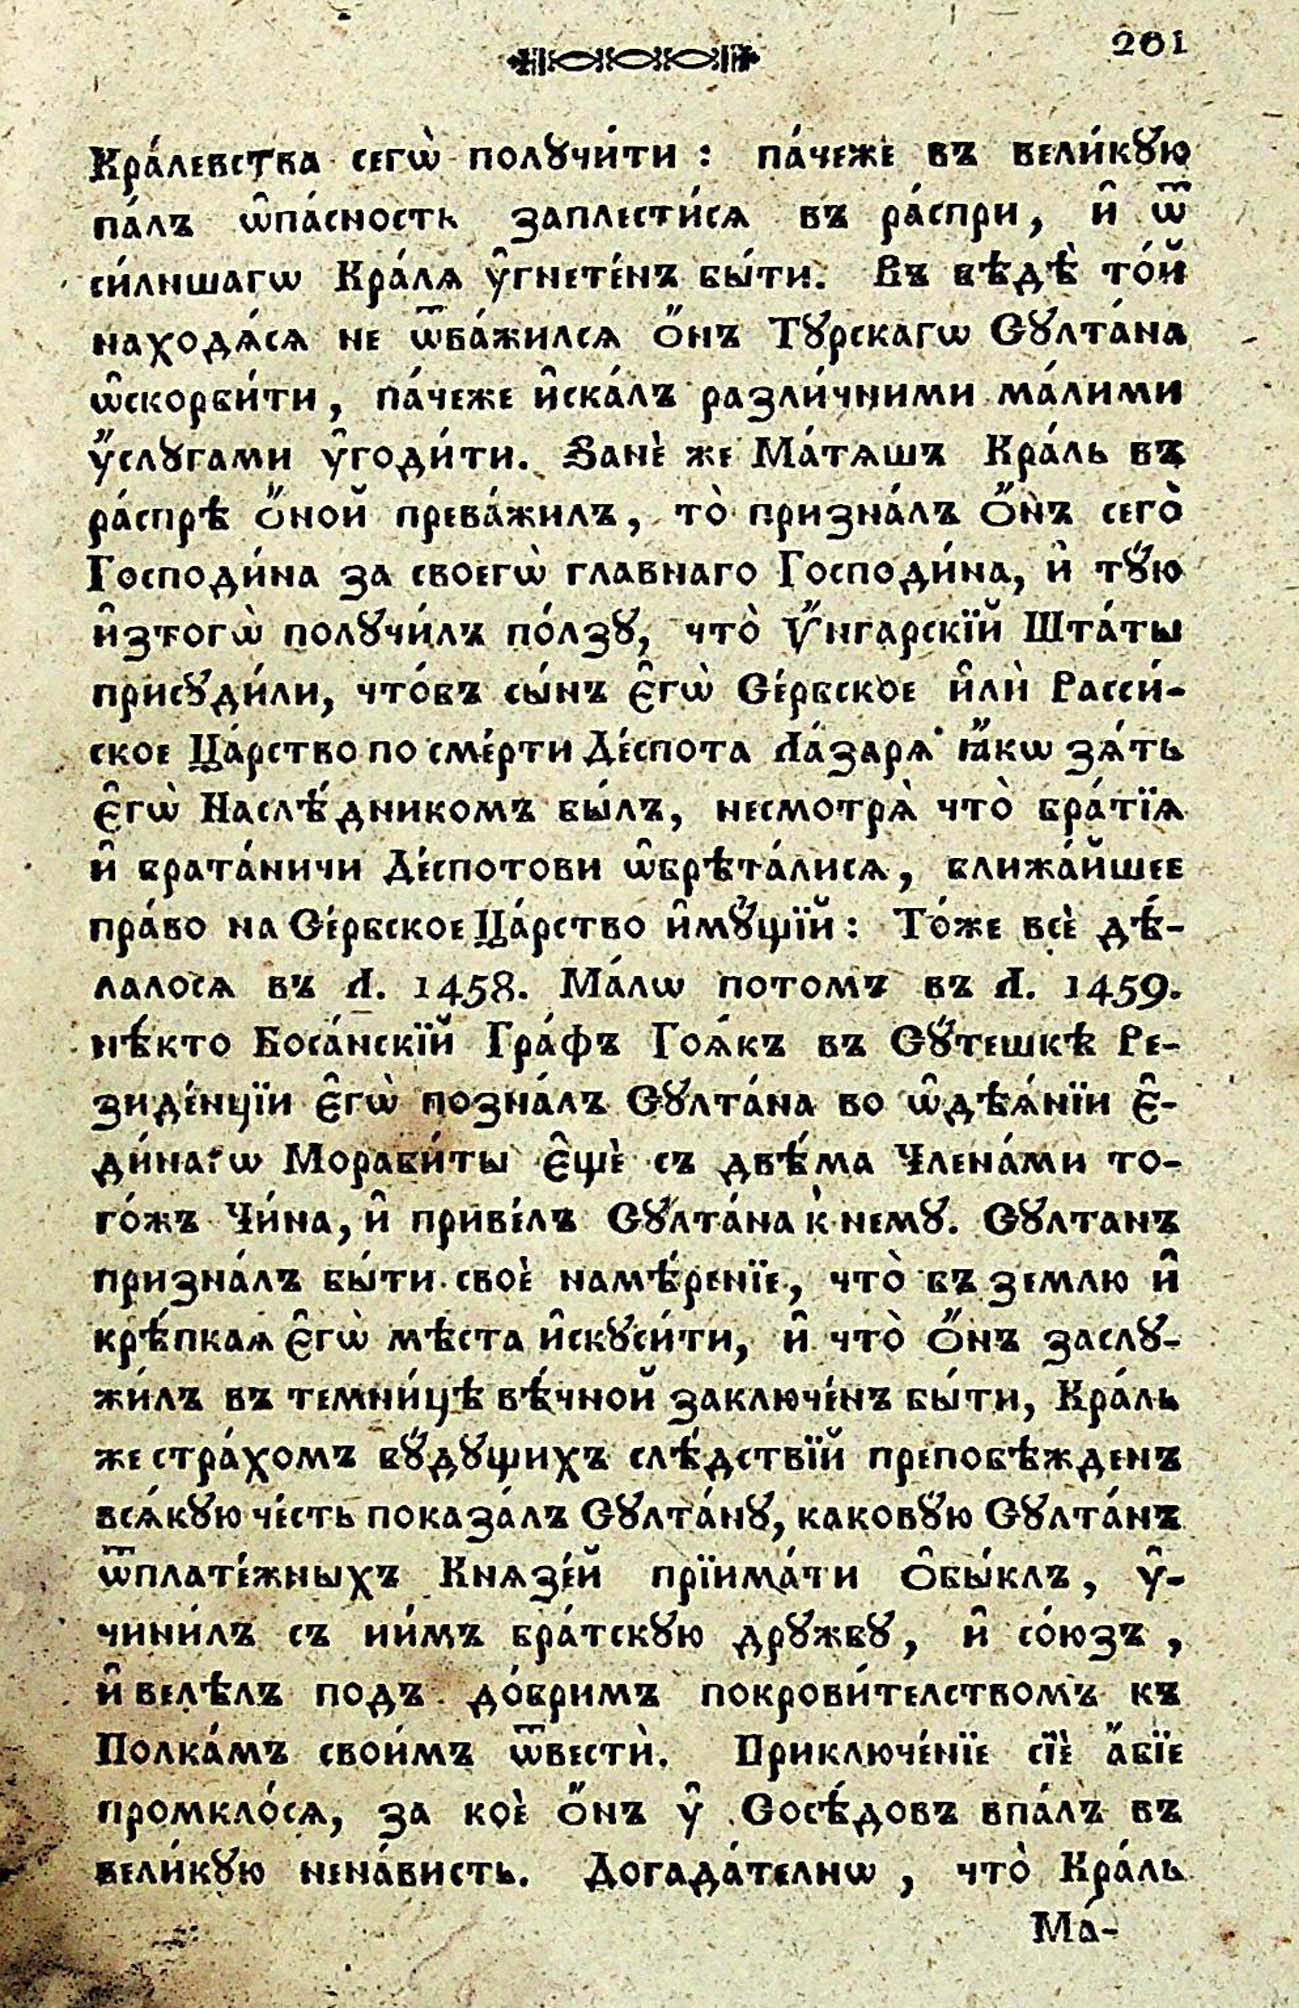 201
Кра́левства сегѡ̀ полꙋчи́ти : па́чеже въ вели́кꙋю
па́лъ ѡ҆па́сность заплести́сѧ въ ра́спри, и҆ ѿ
си́лншагѡ Кра́лѧ ᲂу҆гнете́нъ бы́ти. Въ вѣдѣ̀ то́й
находѧ́сѧ не ѿва́жилсѧ ѻ҆́нъ Тꙋрскагѡ Сꙋлта́на
ѡ҆скорби́ти, па́чеже и҆ска́лъ разли́чними ма́лими
ᲂу҆́слꙋгами ᲂу҆годи́ти. Занѐ же Ма́тѧшъ Кра́ль въ
ра́спрѣ ѻ҆́ной прева́жилъ, то̀ призна́лъ ѻ҆́нъ сего̀
Господи́на за своегѡ̀ главнаго Господи́на, и҆ тꙋ́ю
и҆зтогѡ̀ полꙋчи́лъ по́лзꙋ, что̀ Ѵ҆́нгарскїй Шта́ты
присꙋди́ли, что́бъ сы́нъ є҆гѡ̀ Се́рбское и҆лѝ Расси́-
ское Ца́рство по сме́рти Де́спота Ла́зарѧ ꙗ҆́кѡ зѧ́ть
є҆гѡ̀ Наслѣ́дникомъ бы́лъ, несмотрѧ̀ что̀ бра́тїѧ
и҆ брата́ничи Де́спотови ѡ҆брѣта́лисѧ, ближа́йшее
пра́во на Се́рбское Ца́рство и҆мꙋ́щїй : То́же всѐ дѣ́-
лалосѧ въ Л. 1458. Ма́лѡ потомъ въ Л. 1459.
нѣ́кто Боса́нскїй Гра́фъ Гоѧ́къ въ Сꙋ́тешкѣ Ре-
зиде́нцїи є҆гѡ̀ позна́лъ Сꙋлта́на во ѡ҆дѣѧ́нїи є҆-
ди́нагѡ Мораби́ты є҆щѐ съ двѣ́ма Члена́ми то-
го́жъ Чи́на, и҆ приве́лъ Сꙋлта́на к̀ немꙋ. Сꙋлтанъ
призна́лъ бы́ти своѐ намѣ́ренїе, что̀ въ землю и҆
крѣ́пкаѧ є҆гѡ̀ мѣста и҆скꙋси́ти, и҆ что̀ ѻ҆́нъ заслꙋ-
жи́лъ въ темни́цѣ вѣ́чной заключе́нъ бы́ти, Кра́ль
же стра́хомъ бꙋ́дꙋщихъ слѣ́дствїй препобѣжденъ
всѧ́кꙋю че́сть показа́лъ Сꙋлта́нꙋ, каковꙋ́ю Сꙋлта́нъ
ѿплате́жныхъ Кнѧзе́й прїима́ти ѻ҆бы́клъ, ᲂу҆-
чини́лъ съ ни́мъ бра́тскꙋю дрꙋжбꙋ, и҆ со́юзъ ,
и҆ велѣлъ подъ до́бримъ покрови́телством̀ъ къ
Полка́мъ свои́мъ ѿвестѝ. Приключе́нїе сїѐ а҆́бїе
промкло́сѧ, за коѐ ѻ҆́нъ ᲂу҆ Сосѣ́довъ впа́лъ въ
вели́кꙋю нена́висть. Догада́телнѡ , что̀ Кра́ль
Ма́-